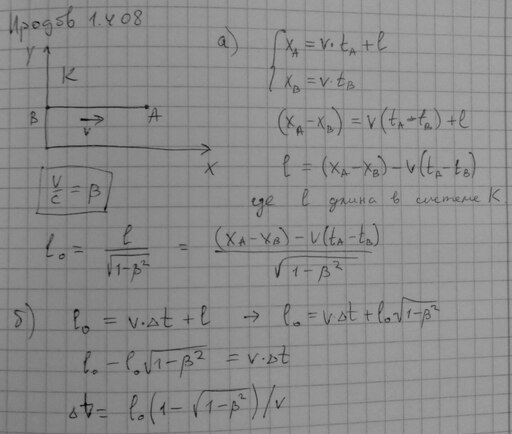 Иродов 1.408
y
K
B A
v
x
v/c = β
а) { x_A = v·t_A + l
x_B = v·t_B
(x_A − x_B) = v(t_A − t_B) + l
l = (x_A − x_B) − v(t_A − t_B)
где l длина в системе K
l₀ = l/√(1−β²) = ((x_A − x_B) − v(t_A − t_B))/√(1−β²)
б) l₀ = v·Δt + l → l₀ = v·Δt + l₀√(1−β²)
l₀ − l₀√(1−β²) = v·Δt
Δt = l₀(1 − √(1−β²))/v